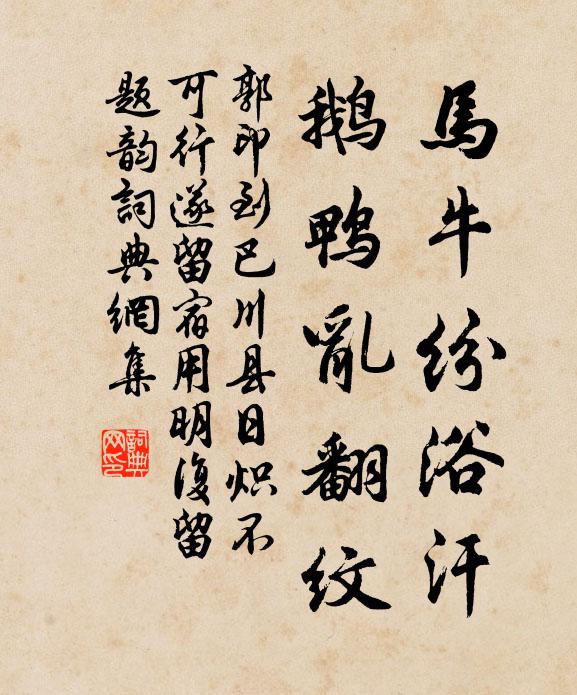 馬牛紛浴汗
鹅鸭亂翻紋
郭印到巴川县日炽不
可行遂留宿用明復留
题韵詞典網集
詞典
网印